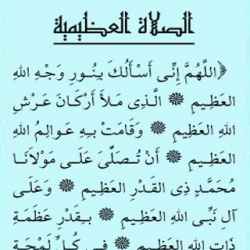 الصلاة العظيمية
﴿اللَّهُمَّ إِنِّى أَسْأَلُكَ بِنُورِ وَجْهِ اللهِ
العَظِيمِ ۞ الَّذِى مَلَأَ أَرْكَانَ عَرْشِ
اللهِ العَظِيمِ ۞ وَقَامَتْ بِهِ عَوَالِمُ اللهِ
العَظِيمِ ۞ أَنْ تُصَلِّىَ عَلَى مَوْلَانَا
مُحَمَّدٍ ذِى القَدْرِ العَظِيمِ ۞ وَعَلَى
آلِ نَبِّى اللهِ العَظِيمِ ۞ بِقَدْرِ عَظَمَةِ
ذَاتِ اللهِ العَظِيمِ ۞ فِى كُلِّ لَمْحَةٍ